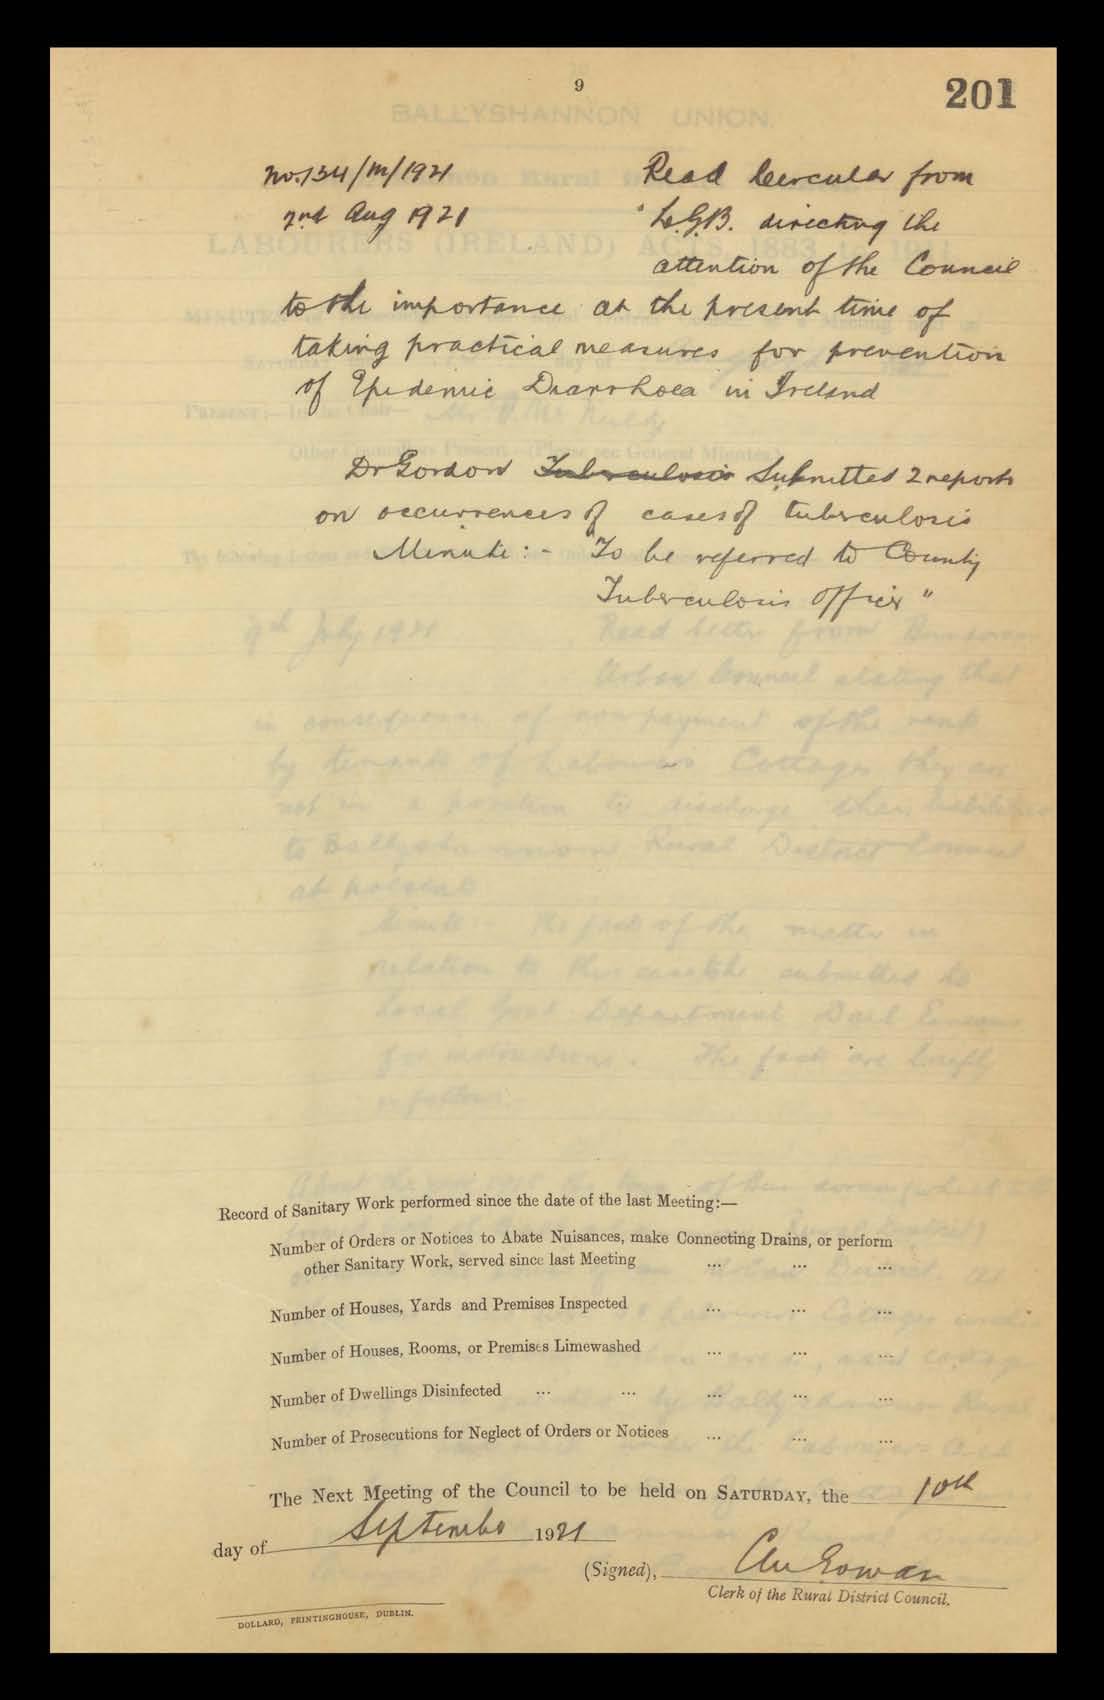 9
201
No. 134/M/1921
2nd Aug 1921
Read Circular from
L.G.B. directing the
attention of the Council
to the importance at the present time of
taking practical measures for prevention
of Epidemic Diarrhoea in Ireland
Dr Gordon Tuberculosis Submitted 2 reports
on occurrences of cases of tuberculosis
Minute :- "To be referred to County
Tuberculosis Officer"
Record of Sanitary Work performed since the date of the last Meeting:—
Number of Orders or Notices to Abate Nuisances, make Connecting Drains, or perform
other Sanitary Work, served since last Meeting ... ... ...
Number of Houses, Yards and Premises Inspected ... ... ...
Number of Houses, Rooms, or Premises Limewashed ... ... ...
Number of Dwellings Disinfected ... ... ... ... ...
Number of Prosecutions for Neglect of Orders or Notices ... ... ...
The Next Meeting of the Council to be held on SATURDAY, the 10th
day of September 1921
(Signed),
Clerk of the Rural District Council.
DOLLARD, PRINTINGHOUSE, DUBLIN.